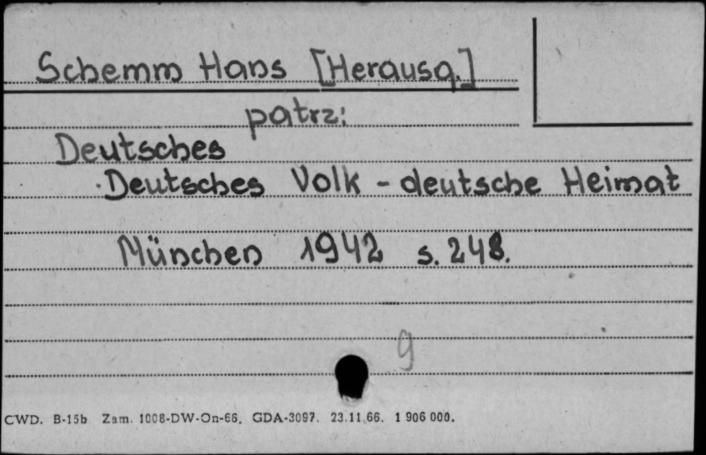 Schemm Hans [Herausg.]
patrz:
Deutsches
Deutsches Volk - deutsche Heimat
München 1942 s. 248.
9
CWD. B-15b Zam. 1008-DW-On-66. GDA-3097. 23.11.66. 1 906 000.